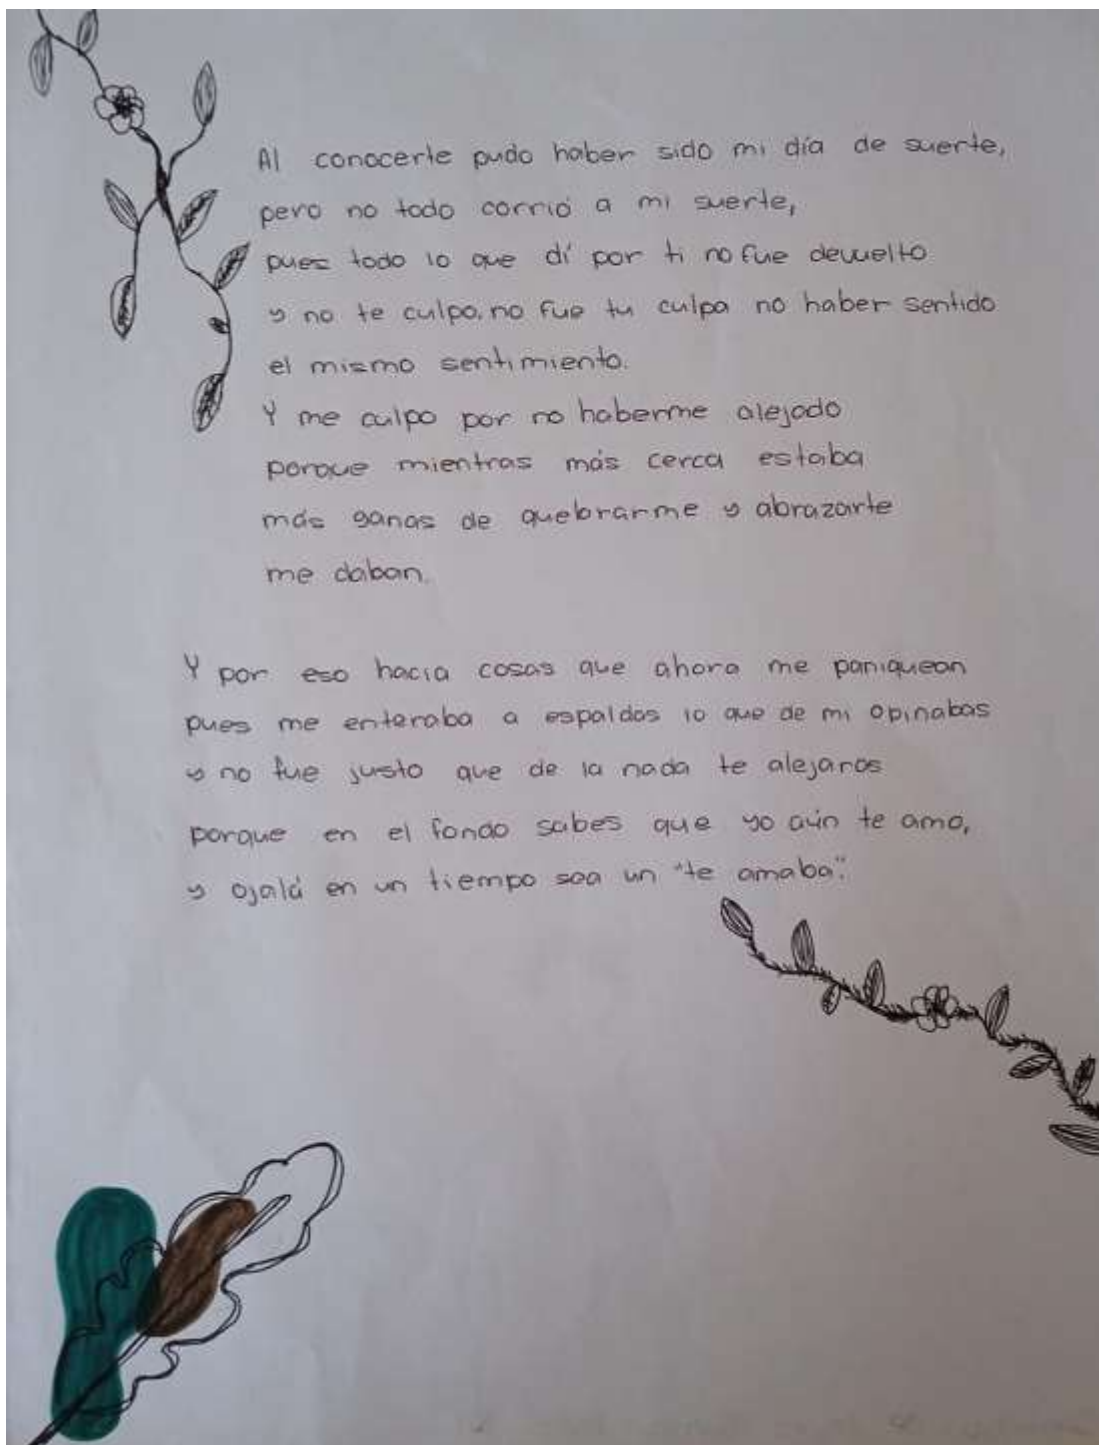 Al conocerte pudo haber sido mi día de suerte,
pero no todo corrió a mi suerte,
pues todo lo que dí por ti no fue devuelto
y no te culpo, no fue tu culpa no haber sentido
el mismo sentimiento.
Y me culpo por no haberme alejado
porque mientras más cerca estaba
más ganas de quebrarme y abrazarte
me daban.
Y por eso hacia cosas que ahora me paniquean
pues me enteraba a espaldas lo que de mi opinabas
y no fue justo que de la nada te alejaras
porque en el fondo sabes que yo aún te amo,
y ojalá en un tiempo sea un "te amaba".